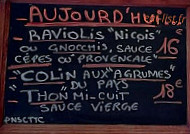 AUJOURD'HUI
RAVIOLIS "Niçois" 16€
ou GNOCCHIS, SAUCE
CÈPES ou PROVENCALE
"COLIN AUX "AGRUMES"
DU PAYS 18€
THON MI-CUIT
SAUCE VIERGE
PNSCTTC